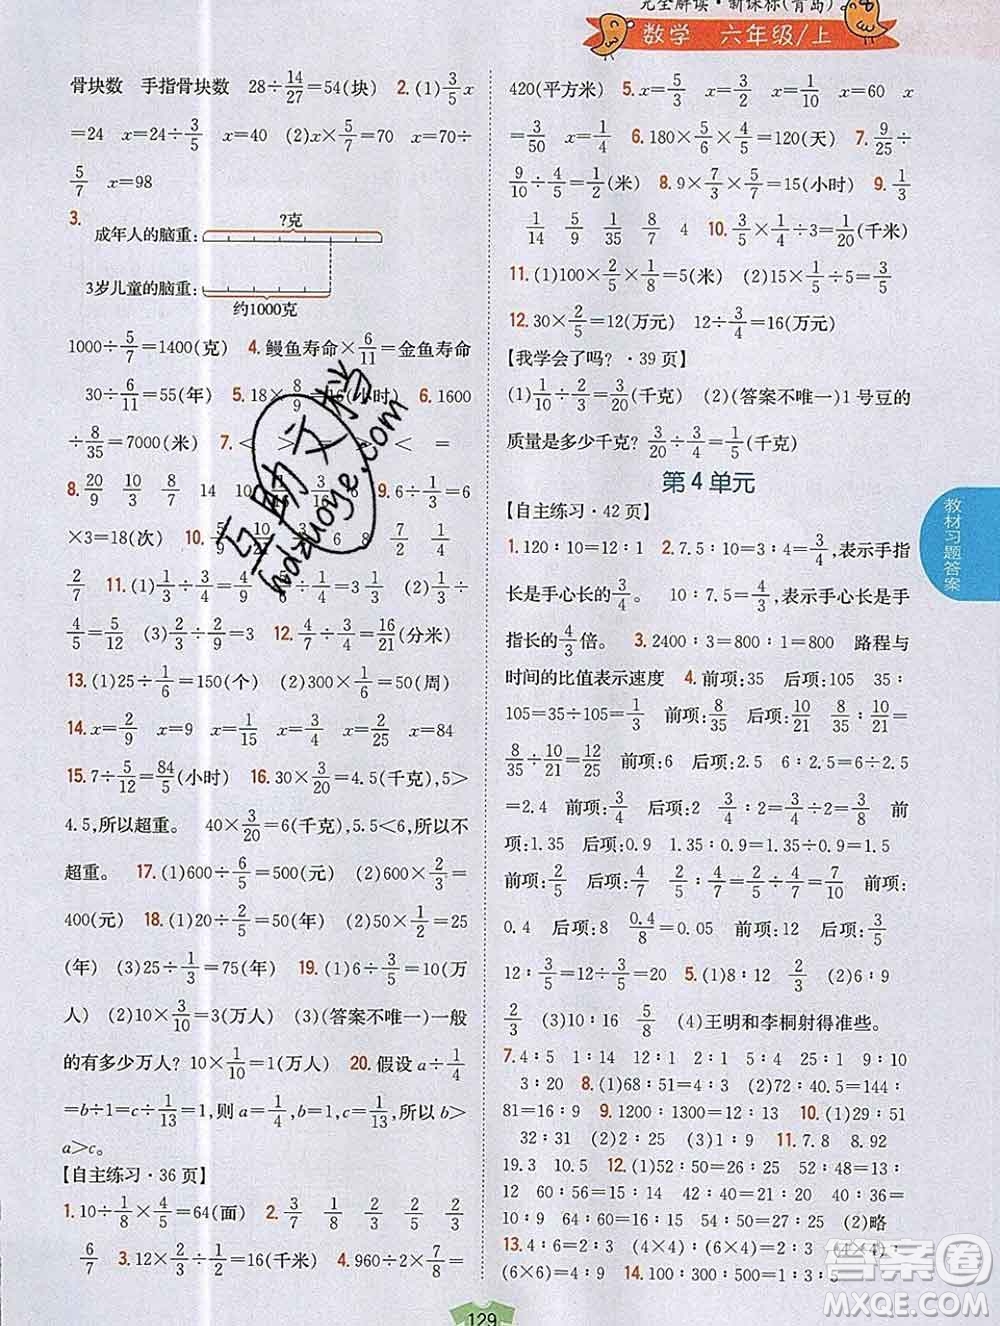 完全解读·新课标(青岛)
数学 六年级/上
骨块数 手指骨块数 28÷14/27=54(块) 2.(1)3/5x
=24 x=24÷3/5 x=40 (2)x×5/7=70 x=70÷
5/7 x=98
3.
?克
成年人的脑重:
3岁儿童的脑重:
约1000克
1000÷5/7=1400(克) 4.鳗鱼寿命×6/11=金鱼寿命
30÷6/11=55(年) 5.18×8/9=16(小时) 6.1600
÷8/35=7000(米) 7.< > < =
8.20/9 10/3 8/7 14 9.6÷1/3=6
×3=18(次) 10.5/9 6 8
2/7 11.(1)1/3÷4/9=3/4
4/5=5/12 (3)3/13÷1/13=3 12.4/7÷3/4=16/21(分米)
13.(1)25÷1/6=150(个) (2)300×1/6=50(周)
14.x=2/9 x=9 x=1/15 x=4/3 x=84
15.7÷5/12=84/5(小时) 16.30×3/20=4.5(千克),5>
4.5,所以超重。 40×3/20=6(千克),5.5<6,所以不
超重。 17.(1)600÷6/5=500(元) (2)600×2/3=
400(元) 18.(1)20÷2/5=50(年) (2)50×1/2=25
(年) (3)25÷1/3=75(年) 19.(1)6÷3/5=10(万
人) (2)10×3/10=3(万人) (3)(答案不唯一)一般
的有多少万人?10×1/10=1(万人) 20.假设a÷1/4
=b÷1=c÷1/13=1,则a=1/4,b=1,c=1/13,所以b>
a>c。
[自主练习·36页]
1.10÷1/8×4/5=64(面) 2.3/7 1/8 3/4 2/3
6/7 3.12×2/3÷1/2=16(千米) 4.960÷2×7/8=
420(平方米) 5.x=5/3 x=3/2 x=1/10 x=60 x
=3/50 x=1/4 6.180×5/6×4/5=120(天) 7.9/25÷
9/10÷4/5=1/2(米) 8.9×7/3×5/7=15(小时) 9.1/3
1/14 8/15 1/35 8/7 4 10.3/5×1/4÷3=1/20(千米)
11.(1)100×1/4×1/5=5(米) (2)15×1/5÷5=3/5
12.30×2/5=12(万元) 12÷3/4=16(万元)
[我学会了吗?·39页]
(1)1/10÷1/3=3/10(千克) (2)(答案不唯一)1号豆的
质量是多少千克?3/20÷3/4=1/5(千克)
第4单元
[自主练习·42页]
1.120:10=12:1 2.7.5:10=3:4=3/4,表示手指
长是手心长的3/4。 10:7.5=4/3,表示手心长是手
指长的4/3倍。 3.2400:3=800:1=800 路程与
时间的比值表示速度 4.前项:35 后项:105 35:
105=35÷105=1/3 前项:8/35 后项:10/21 8/35:10/21=
8/35÷10/21=12/25 前项:6 后项:2.5 6:2.5=6÷2.5
=2.4 前项:3/4 后项:2 3/4:2=3/4÷2=3/8 前项:
1.35 后项:0.9 1.35:0.9=1.35÷0.9=1.5
前项:2/5 后项:4/7 2/5:4/7=2/5÷4/7=7/10 前项:
0.4 后项:8 0.4/8=0.05 前项:12 后项:3/5
12:3/5=12÷3/5=20 5.(1)8:12 2/3 (2)6:9
2/3 (3)10:16 5/8 (4)王明和李桐射得准些。
7.4:5 1:12 1:2 1:5 4:25 1:9 9:10
3:20 8.(1)68:51=4:3 (2)72:40.5=144:
81=16:9 9.1200:1300=12:13 10.(1)29:51
32:31 (2)2:1 11.7.8 8.92
19.3 10.5 12.(1)52:40=13:10 42:48=7:8
50:50=1:1 56:64=7:8 60:40=3:2
50:29 64:55 45:43 65:57 (2)略
13.4:6=2:3 (4×4):(6×4)=2:3 (4×4):
(6×6)=4:9 14.(1)1:4 (2)1:3 (3)3:5
教材习题答案
互助文档
hdzuoye.com
答案圈
MXQE.COM
129